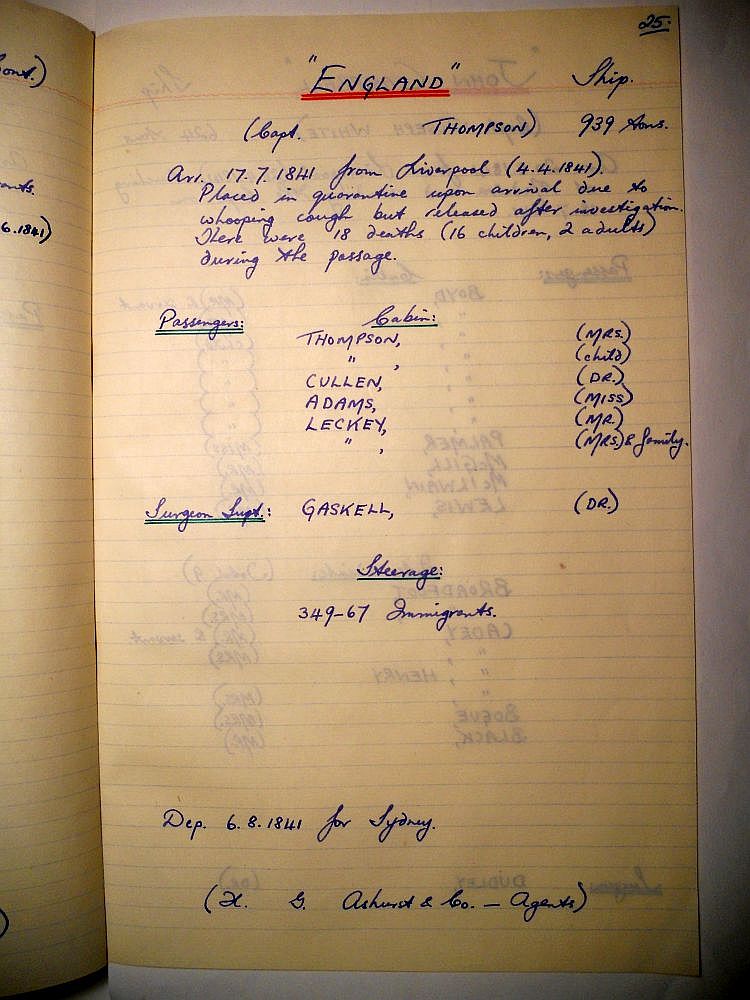 ont.)
ants.
6.1841)
25.
"ENGLAND" Ship.
(Capt. THOMPSON) 939 tons.
Arr. 17.7.1841 from Liverpool (4.4.1841).
Placed in quarantine upon arrival due to
whooping cough but released after investigation.
There were 18 deaths (16 children, 2 adults)
during the passage.
Passengers: Cabin:
THOMPSON, (MRS.)
" , (child)
CULLEN, (DR.)
ADAMS, (MISS)
LECKEY, (MR.)
" , (MRS.) & family.
Surgeon Supt.: GASKELL, (DR.)
Steerage:
349-67 Immigrants.
Dep. 6.8.1841 for Sydney.
(H. G. Ashurst & Co. – Agents)